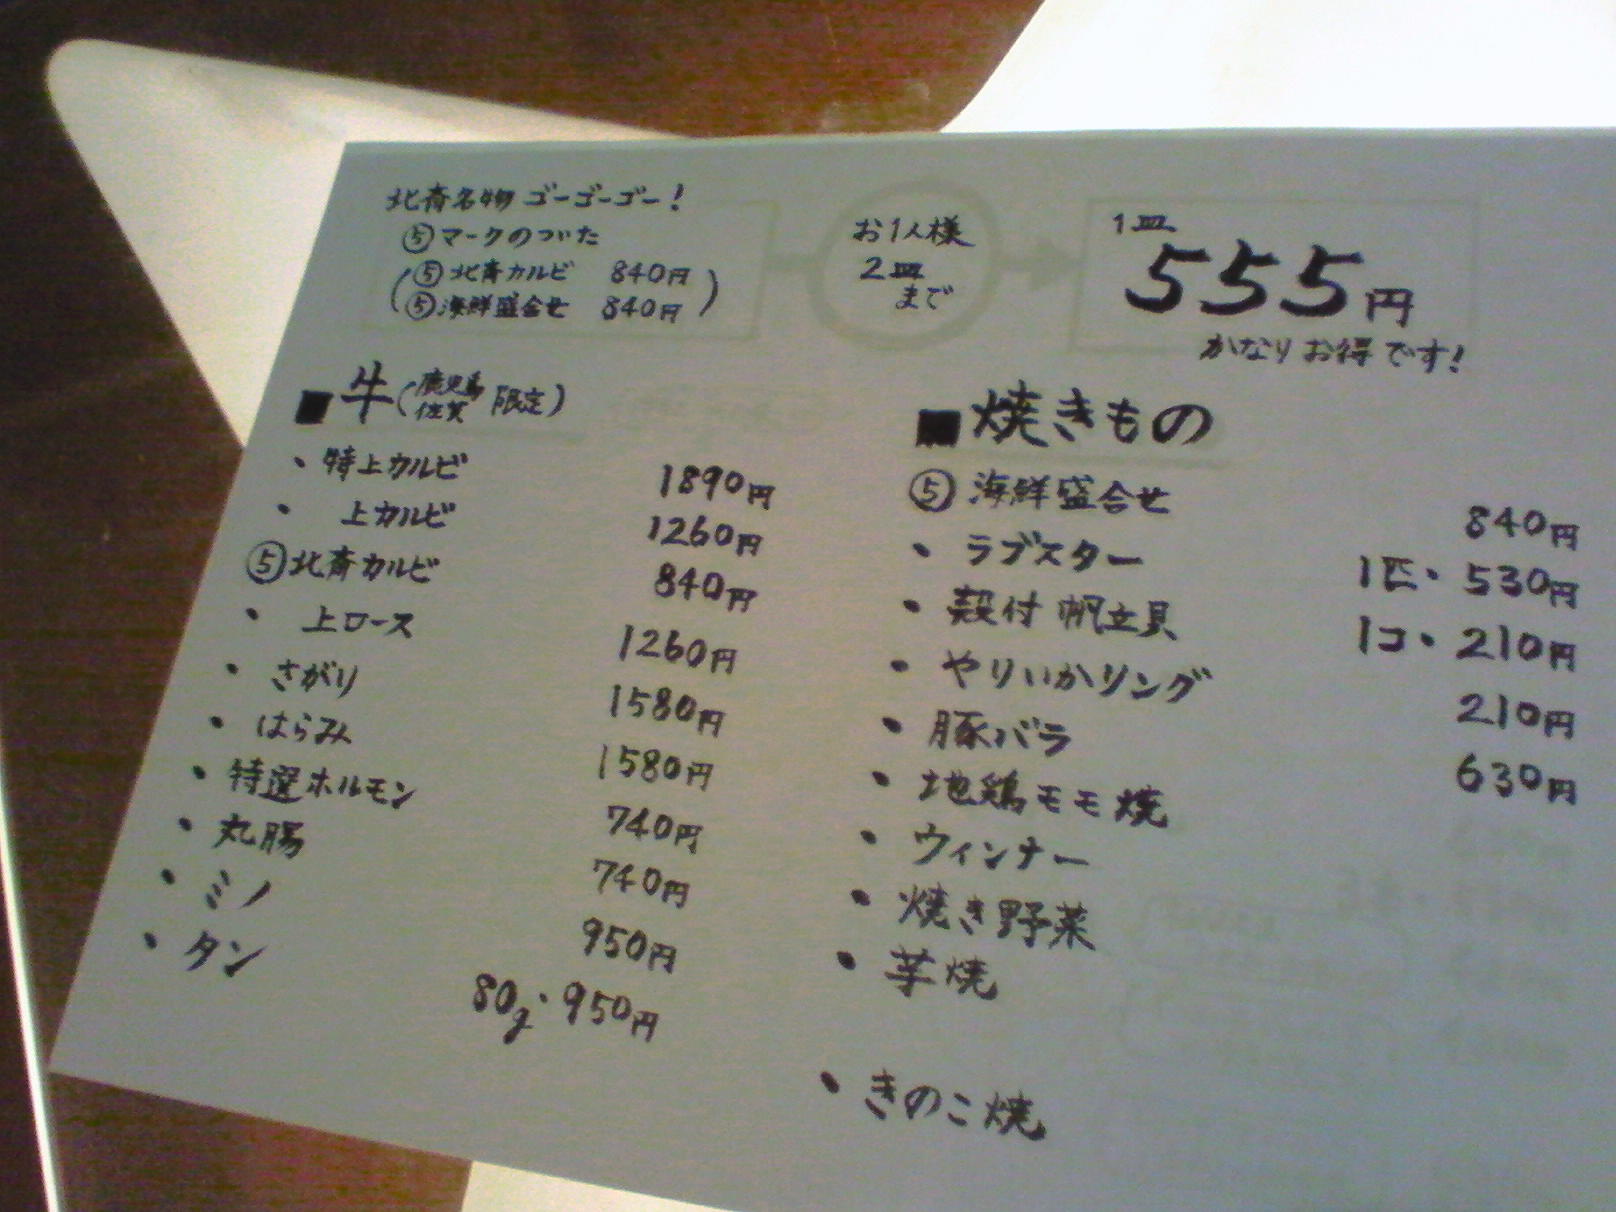 北斎名物 ゴーゴーゴー!
⑤マークのついた
(⑤北斎カルビ 840円
⑤海鮮盛合せ 840円)
お1人様
2皿
まで
1皿
555円
かなりお得です!
■牛(鹿児島 佐賀 限定)
・特上カルビ 1890円
・上カルビ 1260円
⑤北斎カルビ 840円
・上ロース 1260円
・さがり 1580円
・はらみ 1580円
・特選ホルモン 740円
・丸腸 740円
・ミノ 950円
・タン 80g・950円
■焼きもの
⑤海鮮盛合せ 840円
・ラブスター 1匹・530円
・殻付帆立貝 1コ・210円
・やりいかリング 210円
・豚バラ 630円
・地鶏モモ焼
・ウィンナー
・焼き野菜
・芋焼
・きのこ焼